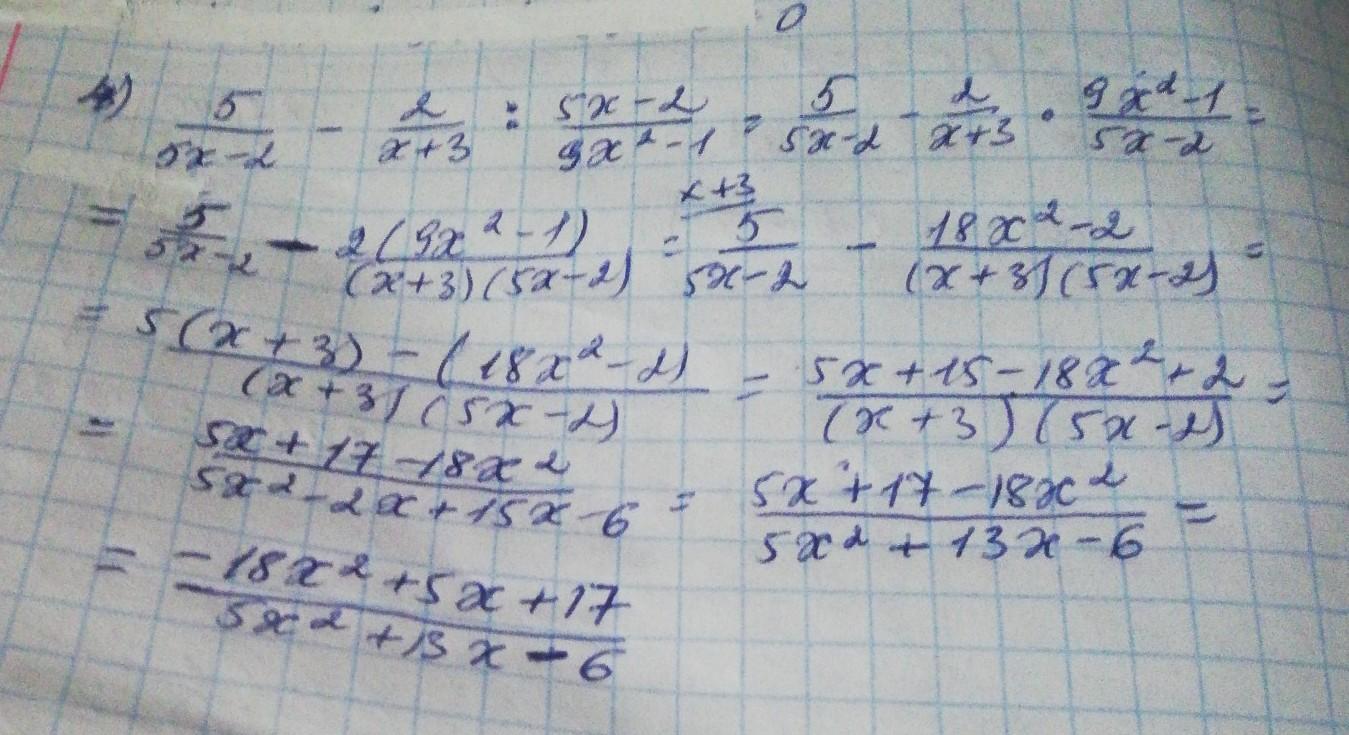 0
4) 5/(5x-2) - 2/(x+3) : (5x-2)/(9x²-1) = 5/(5x-2) - 2/(x+3) · (9x²-1)/(5x-2) =
= 5/(5x-2) - 2(9x²-1)/((x+3)(5x-2)) = x+3 5/(5x-2) - (18x²-2)/((x+3)(5x-2)) =
= (5(x+3)-(18x²-2))/((x+3)(5x-2)) = (5x+15-18x²+2)/((x+3)(5x-2)) =
= (5x+17-18x²)/(5x²-2x+15x-6) = (5x+17-18x²)/(5x²+13x-6) =
= (-18x²+5x+17)/(5x²+13x-6)